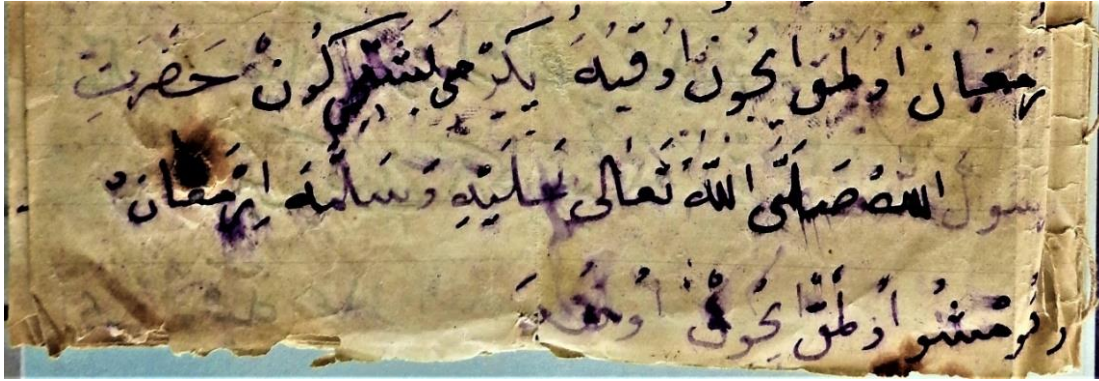 رْمغان اُولمق ایچُونْ اوُقیَهْ یکرْمی بشنجی کُونْ حَضْرَتِ
رسول اللّٰه صَلَّی اللّٰهُ تَعَالٰی عَلَیْهِ وَسَلَّمَهَ اِرْمغانْ
وقُومْشو اُولمقْ ایچُونْ اُوقُیَه